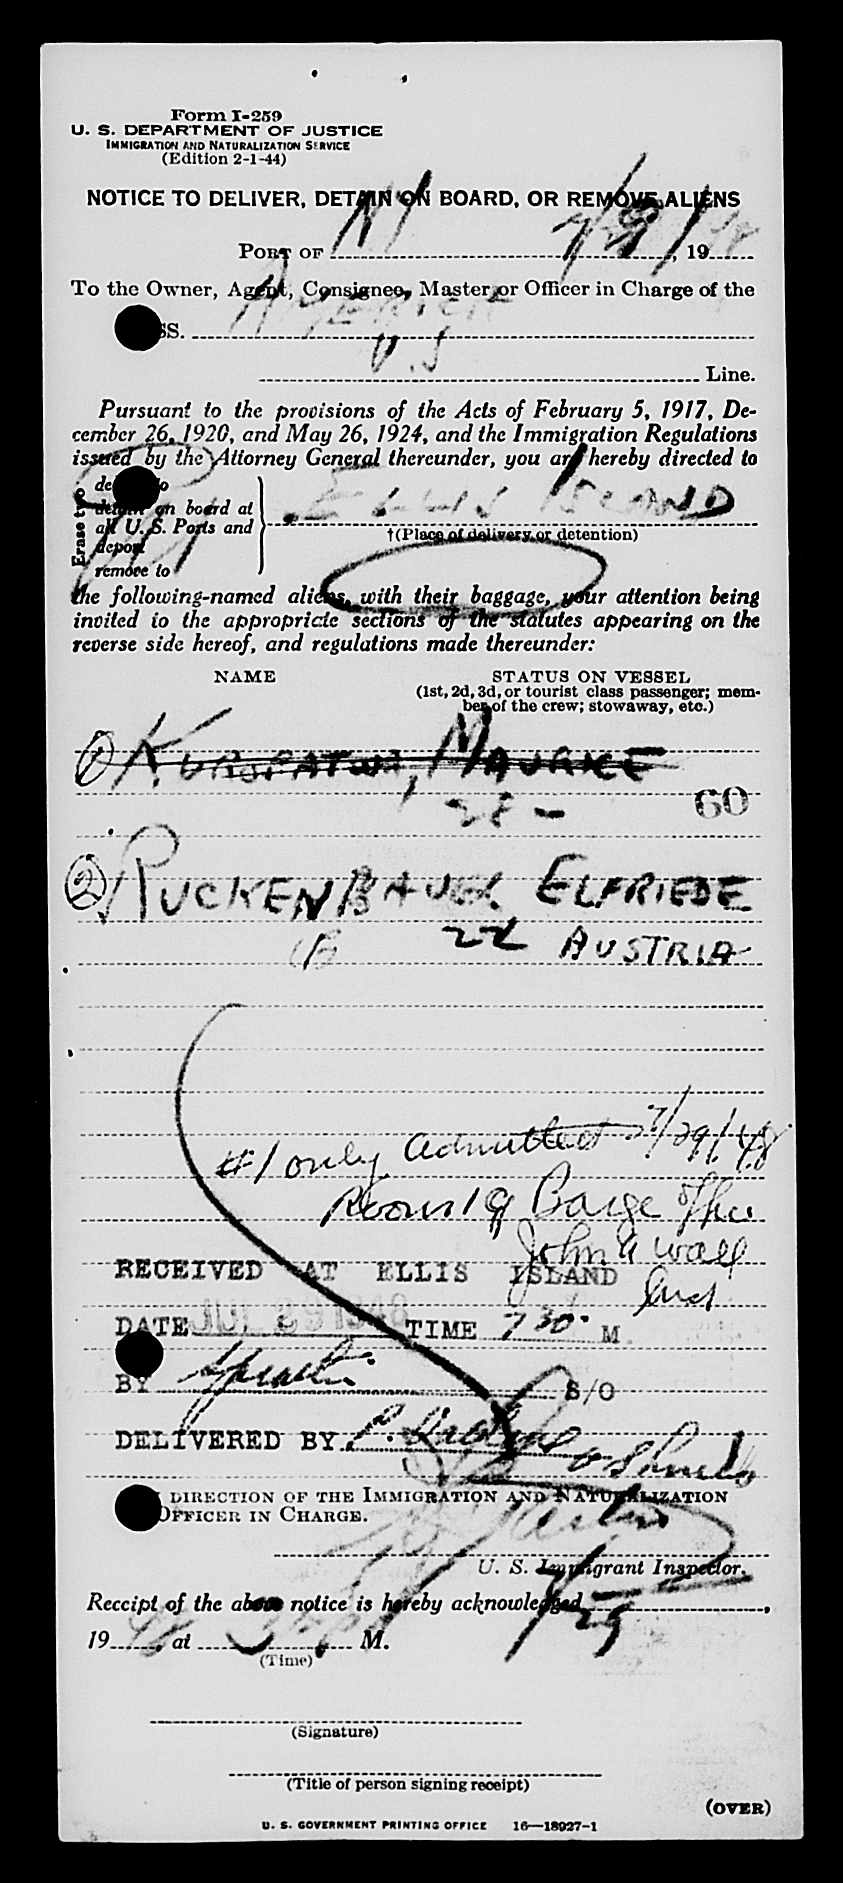 Form I-259
U. S. DEPARTMENT OF JUSTICE
IMMIGRATION AND NATURALIZATION SERVICE
(Edition 2-1-44)
NOTICE TO DELIVER, DETAIN ON BOARD, OR REMOVE ALIENS
PORT OF NY 7/29/, 1948
To the Owner, Agent, Consignee, Master or Officer in Charge of the
SS. AMERICA
U.S Line.
Pursuant to the provisions of the Acts of February 5, 1917, De-
cember 26, 1920, and May 26, 1924, and the Immigration Regulations
issued by the Attorney General thereunder, you are hereby directed to
Erase two
to
detain on board at
all U. S. Ports and
deport
remove to
ELLIS ISLAND
†(Place of delivery or detention)
the following-named aliens, with their baggage, your attention being
invited to the appropriate sections of the statutes appearing on the
reverse side hereof, and regulations made thereunder:
NAME STATUS ON VESSEL
(1st, 2d, 3d, or tourist class passenger; mem-
ber of the crew; stowaway, etc.)
① KUROPATWA, MAURICE
28 -
60
② RUCKENBAUER ELFRIEDE
22 AUSTRIA
#1 only admitted 7/29/48
Room 19 Barge Office
John A Wall
Insp
RECEIVED AT ELLIS ISLAND
DATE JUL 29 1948 TIME 7 30 M
BY S/O
DELIVERED BY P.
DIRECTION OF THE IMMIGRATION AND NATURALIZATION
OFFICER IN CHARGE.
U. S. Immigrant Inspector.
Receipt of the above notice is hereby acknowledged 7/29,
1948 at M.
(Time)
(Signature)
(Title of person signing receipt)
(OVER)
U. S. GOVERNMENT PRINTING OFFICE 16—18927-1